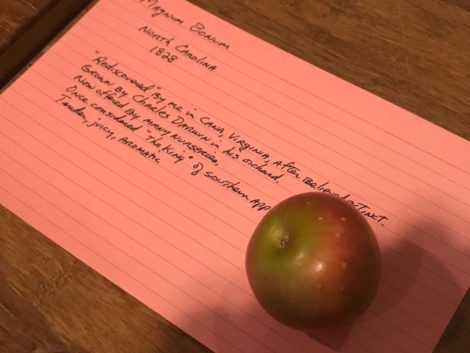 Magnum Bonum
North Carolina
1828
"Rediscovered" by me in Cana, Virginia, after believed extinct.
Grown by Charles Darwin in his orchard.
Now offered by many nurseries.
Once considered "the King" of southern app
Tender, juicy, aromatic